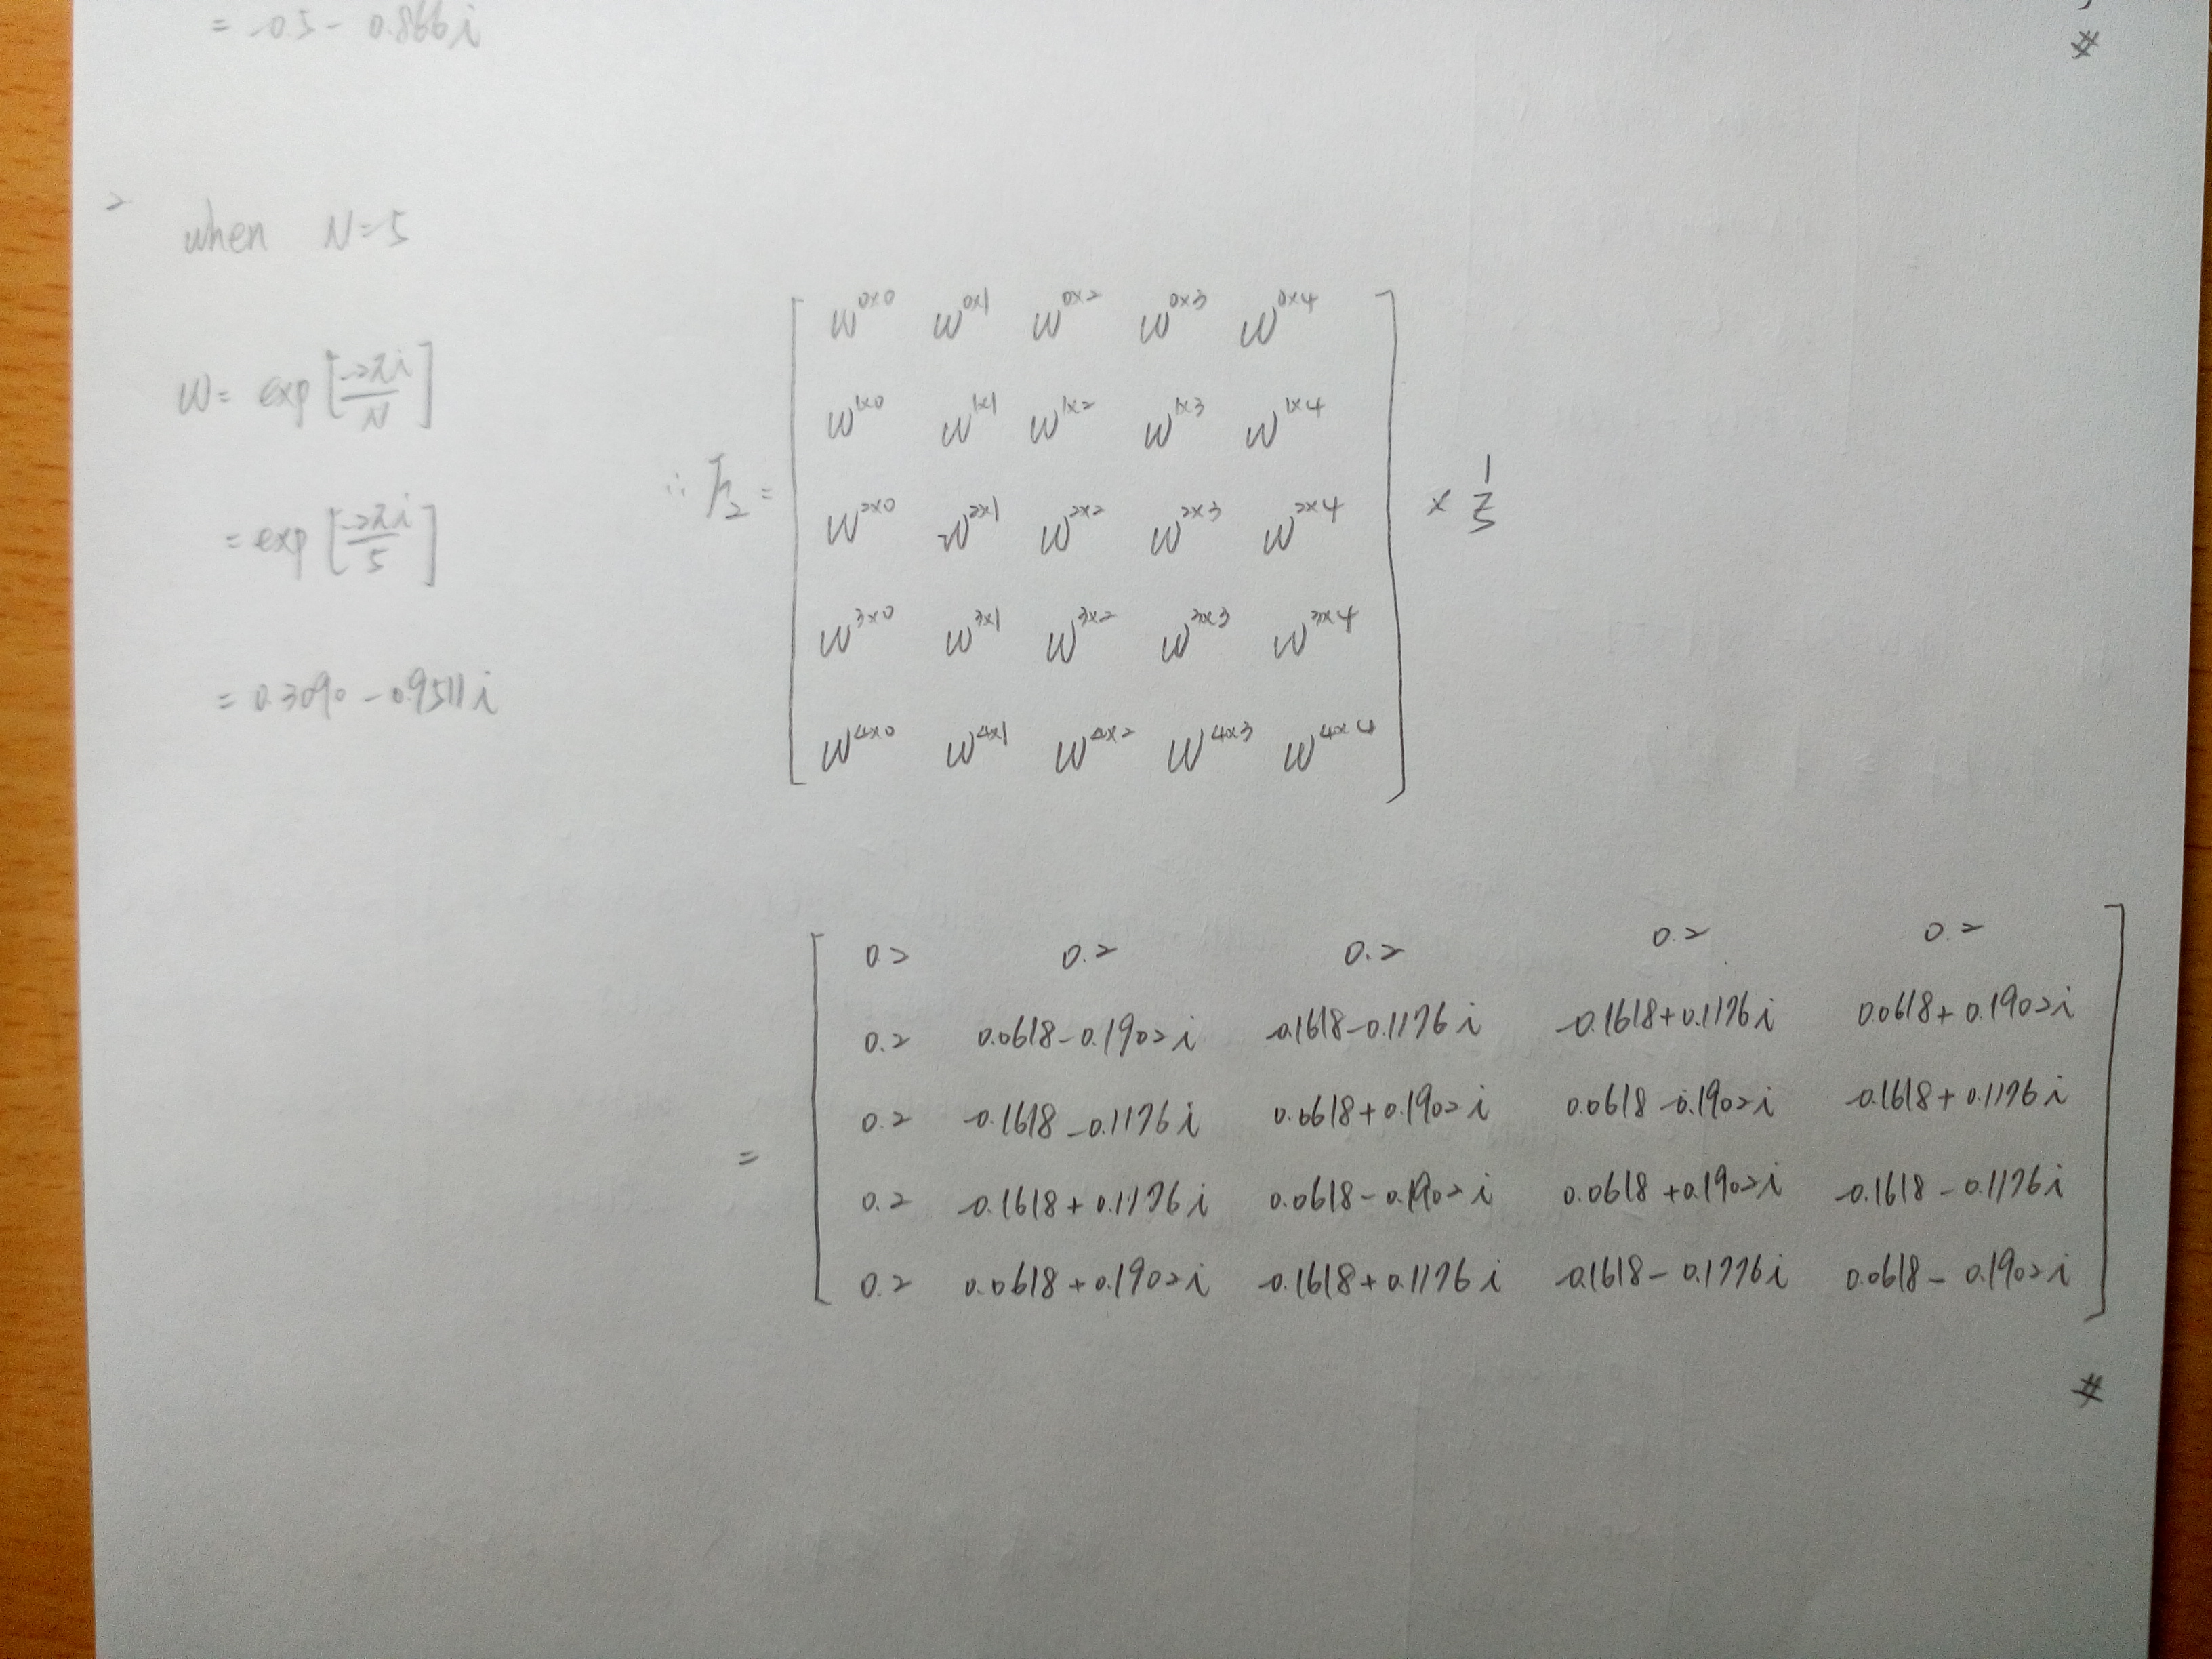 = -0.5 - 0.866i
#
2
when N=5
w = exp[-2πi/N]
= exp[-2πi/5]
= 0.3090 - 0.9511i
w^0x0 w^0x1 w^0x2 w^0x3 w^0x4
w^1x0 w^1x1 w^1x2 w^1x3 w^1x4
∴ F2 = w^2x0 w^2x1 w^2x2 w^2x3 w^2x4 × 1/5
w^3x0 w^3x1 w^3x2 w^3x3 w^3x4
w^4x0 w^4x1 w^4x2 w^4x3 w^4x4
0.2 0.2 0.2 0.2 0.2
0.2 0.0618-0.1902i -0.1618-0.1176i -0.1618+0.1176i 0.0618+0.1902i
0.2 -0.1618-0.1176i 0.0618+0.1902i 0.0618-0.1902i -0.1618+0.1176i
=
0.2 -0.1618+0.1176i 0.0618-0.1902i 0.0618+0.1902i -0.1618-0.1176i
0.2 0.0618+0.1902i -0.1618+0.1176i -0.1618-0.1776i 0.0618-0.1902i
#